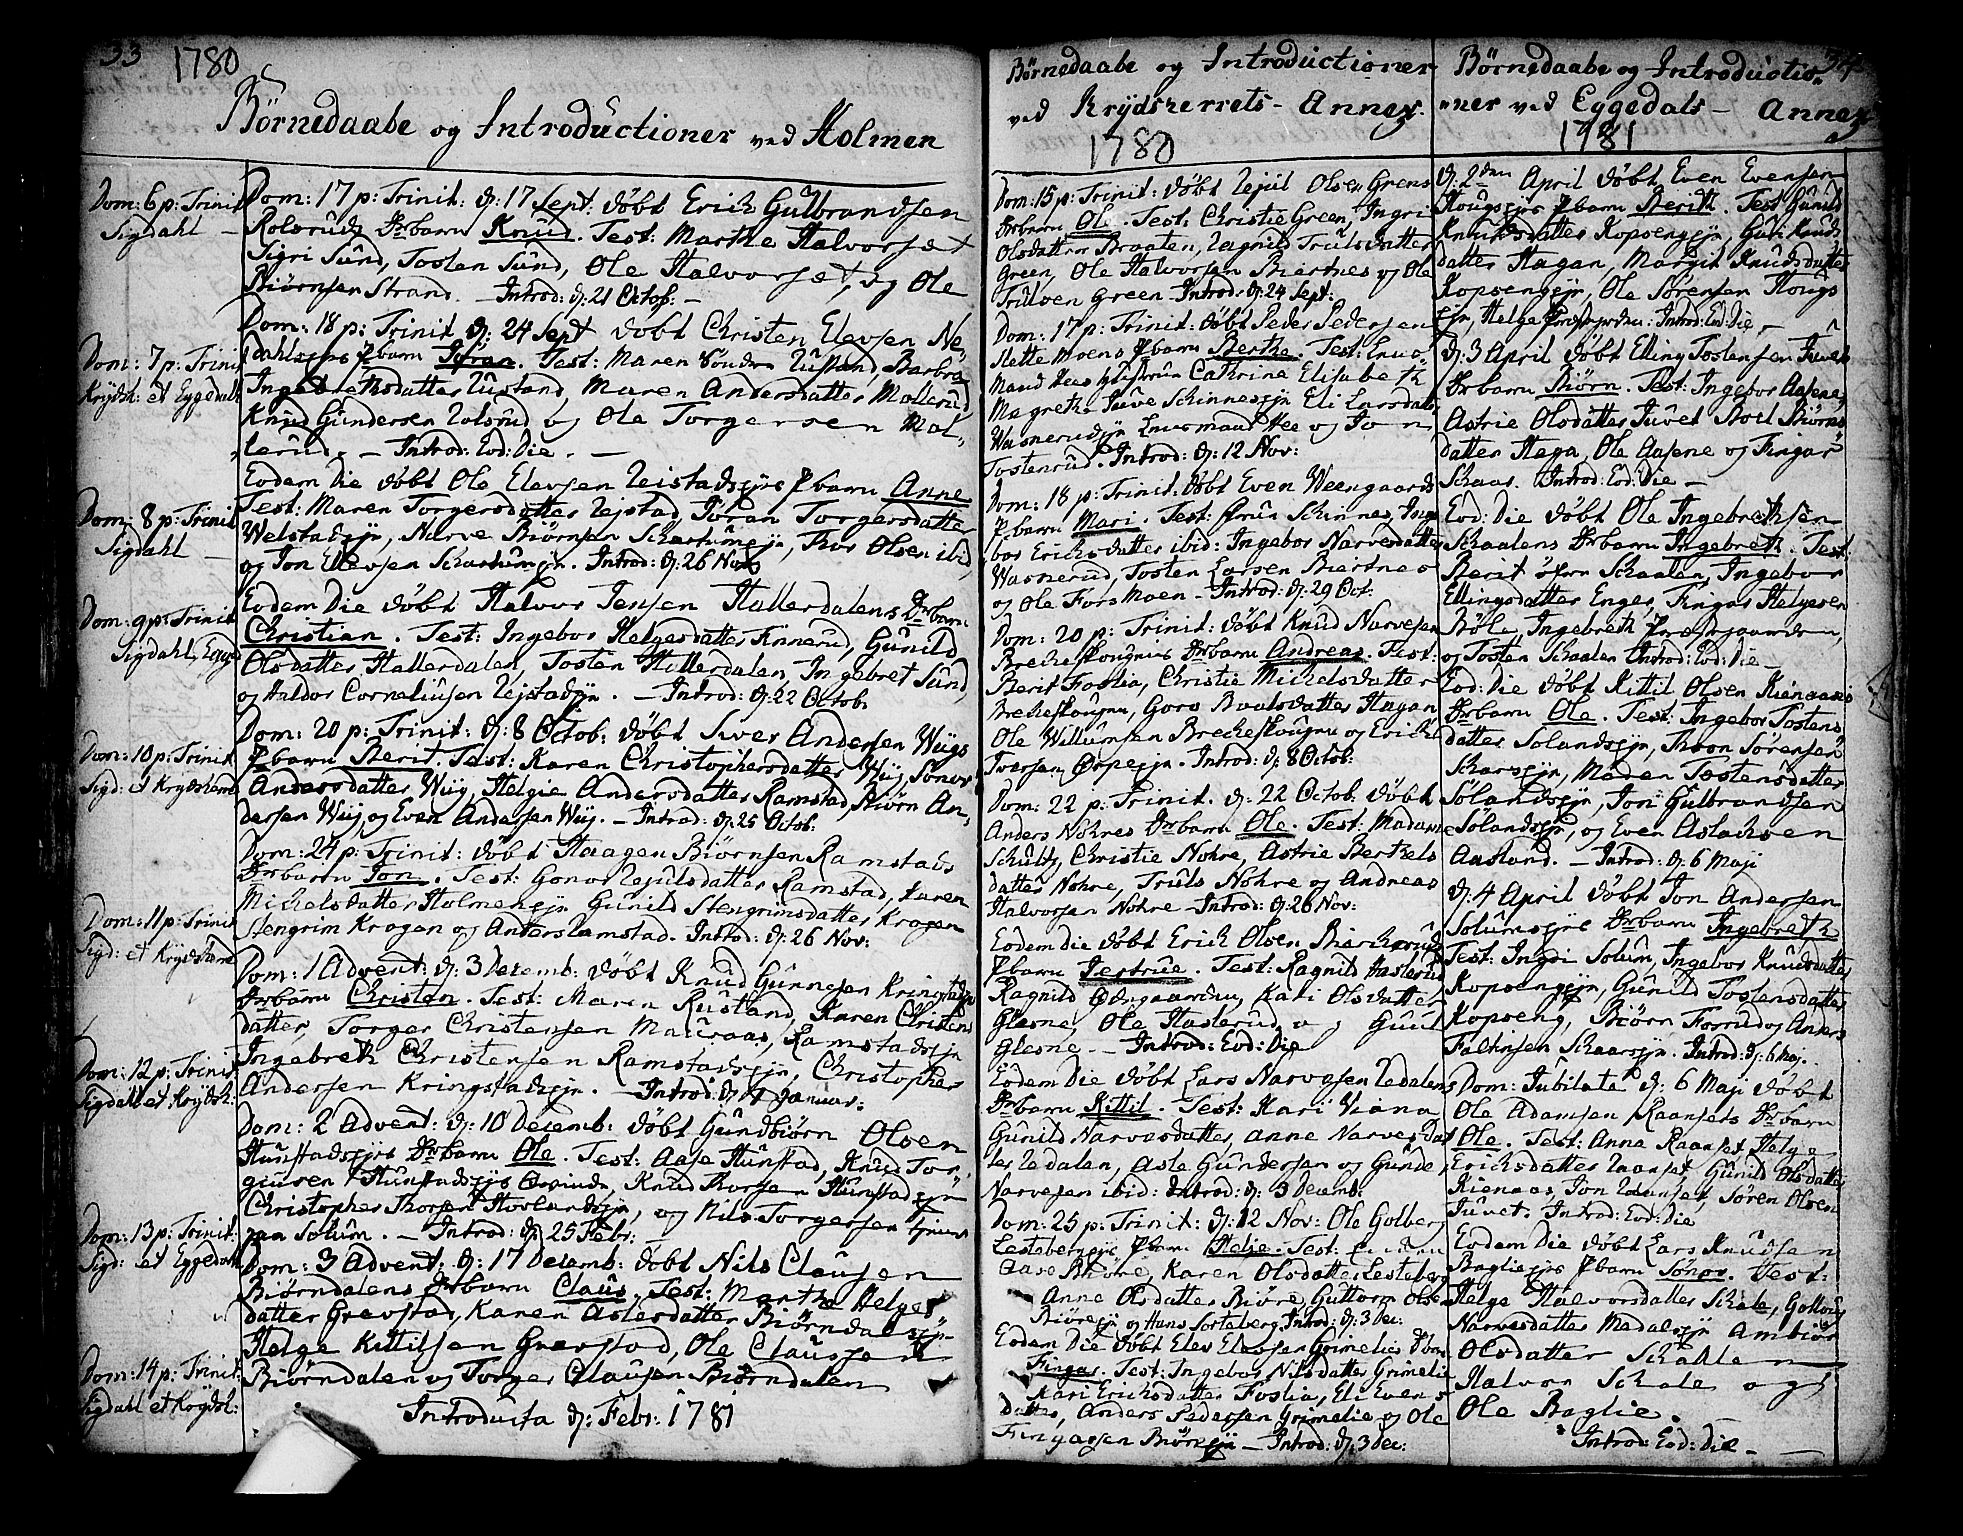 33
1780
Börnedaabe og Introductioner ved Holmen
Dom: 6 p: Trinit
Sigdahl
Dom: 7 p: Trinit
Krydsh: et Eggedahl
Dom: 8 p: Trinit
Sigdahl
Dom: 9 p: Trinit
Sigdahl, Egge
Dom: 10 p: Trinit
Sigd: et Krydsherr
Dom: 11 p: Trinit
Sigd: et Krydsherr
Dom: 12 p: Trinit
Sigdahl et Krydsh:
Dom: 13 p: Trinit:
Sigd: et Eggedahl
Dom: 14 p: Trinit
Sigdahl et Krydsh:
Dom: 17 p: Trinit: d: 17 Sept: döbt Erich Gulbrandsen
Rolsrud barn Knud. Test: Marthe Halvorset
Sigri Sund, Tosten Sund, Ole Halvorset, og Ole
Biörnsen Strand. – Introd: d: 21 Octob: –
Dom: 18 p: Trinit d: 24 Sept döbt Christen Elevsen Ne-
dahlsejes barn Joran. Test: Maren Rustand, Barbra
Ingebrethsdatter Rustand, Maren Andersdatter Mollerud
Knud Gundersen Rolsrud og Ole Torgersen Mol-
lerud. – Introd: Eod: Die. –
Eodem Die döbt Ole Elevsen Rejstadejes barn Anne
Test: Maren Torgersdatter Rejstad, Joran Torgersdatter
Welstadejn, Narve Biörnsen Skartumejn, Thor Olsen ibid,
og Jon Ellevsen Skartumejn. Introd: d: 26 Nov:
Eodem Die döbt Halvor Jensen Hallerdalens barn
Christian. Test: Ingebor Helgesdatter Kinnerud, Gunild
Olsdatter Hallerdalen, Tosten Hallerdalen, Ingebret Sund,
og Haldor Corneliusen Rejstadejn. – Introd: d: 22 Octob:
Dom: 20 p: Trinit: d: 8 Octob: döbt Siver Andersen Wiigs
barn Berit. Test: Karen Christophersdatter Wiig, Sönov
Andersdatter Wiig, Helgie Andersdatter Ramstad, Biörn An-
dersen Wiig, og Even Andersen Wiig. – Introd: d: 25 Octob:
Dom: 24 p: Trinit: döbt Haagen Biörnsen Ramstads
barn Jon. Test: Gonor Rejulsdatter Ramstad, Karen
Michelsdatter Holmensejn Gunild Stengrimsdatter Kragen
Stengrim Kragen og Anders Ramstad. Introd: d: 26 Nov:
Dom: 1 Advent: d: 3 Decemb: döbt Knud Gunnesen Kringstadejes
barn Christen. Test: Maren Rustand, Karen Christens
datter, Torger Christensen Mauraas, Ramstadejn
Ingebreth Christensen Ramstadejn, Christopher
Andersen Kringstadejn. – Introd: d: 7 Januar:
Dom: 2 Advent: d: 10 Decemb: döbt Gundbiörn Olsen
Hunstadejes barn Ole. Test: Aase Hunstad, Knud Tor-
giusen Hunstadejes Qvinde, Knud Thorsen Hunstadejn
Christopher Thorsen Hovlandsejn, og Nils Torgersen
paa Solum. – Introd: d: 25 Febr: –
Dom: 3 Advent: d: 17 Decemb: döbt Nils Clausen
Biörndalens barn Claus. Test: Marthe Helges
datter Grevstad, Karen Aslesdatter Biörndalsejn
Helge Kittilsen Grevstad, Ole Claussen
Biörndalen og Torger Clausen Biörndalen
Introducta d: Febr: 1781
Börnedaabe og Introductioner
ved Krydsherrets – Annex.
1780
Dom: 15 p: Trinit: döbt Rejul Olsen Grens
barn Ole. Test: Christie Green, Ingri
Olsdatter Braaten, Ragnild Trulsdatter
Green, Ole Halvorsen Biertnes og Ole
Trulsen Green – Introd: d: 24 Sept:
Dom: 17 p: Trinit: döbt Peder Pedersen
Slettemoens barn Berthe. Test: Enro-
Maud Hees Hustrue Cathrina Elisabeth
Magrethe Juve Skinnesejn Eli Larsdatter
Wasnerudejn Enromaud Hee og Jon
Tostenrud. Introd: d: 12 Nov:
Dom: 18 p: Trinit: döbt Even Weengaards
barn Mari. Test: Skinnes, Inge-
bor Erichsdatter ibid: Ingebor Narvesdatter
Wasnerud, Tosten Larsen Biertnes
og Ole Forsmoen – Introd: d: 29 Oct:
Dom: 20 p: Trinit: döbt Knud Narvesen
Brekeskougens barn Andreas. Test:
Berit Foslia, Christie Michelsdatter
Brekeskougen, Goro Boolsdatter Hagan
Ole Willumsen Brekeskougen og Erich
Iversen Orpeejn. Introd: d: 8 Octob:
Dom: 22 p: Trinit. d: 22 Octob: döbt
Anders Nohres barn Ole. Test: Madame
Schultz, Christie Nohre, Astrie Berthels
datter Nohre, Truls Nohre og Andreas
Halvorsen Nohre – Introd: d: 26 Nov:
Eodem Die döbt Erich Olsen Bierkeruds
barn Jertrue. Test: Ragnild Haslerud
Ragnild Ödegaarden, Kari Olsdatter
Glesne, Ole Haslerud, og Guul
Glesne. – Introd: Eod: Die
Eodem Die döbt Lars Narvesen Redalens
barn Kittil. Test: Kari Wiana
Gunild Narvesdatter, Anne Narvesdat
ter Redalen, Asle Gundersen og Gunder
Narvesen ibid: Introd: d: 3 Decemb:
Dom: 25 p: Trinit: d: 12 Nov: Ole Golberg
Lestebergejes barn Helje. Test:
Aase Biöre, Karen Olsdatter Lesteberg
Anne Olsdatter Biöre, Guttorm Olsen
Biöreejn og Hans Sorteberg, Introd: d: 3 Dec:
Eodem Die döbt Elev Elevsen Grimelies barn
Fingar. Test: Ingebor Nilsdatter Grimelie
Kari Erichsdatter Foslia, Eli Evens
datter, Anders Pedersen Grimelie og Ole
Fingarsen Biöreejn – Introd: d: 3 Dec:
34
Börnedaabe og Introductio-
ner ved Eggedals – Annex
1781
d: 2den April döbt Even Evensen
Hougsejes barn Berith. Test Gunild
Knudsdatter Kopsengejn, Guri Knuds
datter Hagan, Margit Knudsdatter
Kopsengejn, Ole Sörensen Hougs
ejn, Helge Præstejorden: Introd: Eod: Die –
d: 3 April döbt Elling Tostensen Juvet
barn Biörn. Test: Ingebor Aasene,
Astrie Olsdatter Juvet Boel Biörns
datter Haga, Ole Aasene og Fingar
Skaar. Introd: Eod: Die –
Eod: Die döbt Ole Ingebrethsen
Skaalens barn Ingebreth. Test:
Berit Skaalen, Ingebor
Ellingsdatter Enger, Fingar Helgesen
Böle, Ingebreth Præstgaarden,
og Tosten Skaalen Introd: Eod: Die –
Eod: Die döbt Kittil Olsen Kienaasis
barn Ole. Test: Ingebor Tostens
datter Solandsejn, Thron Sörensen
Skarsejn, Maren Tostensdatter
Sölandsejn, Jon Gulbrandsen
Sölandsejn, og Even Aslachsen
Aasland. – Introd: d: 6 Maji
d: 4 April döbt Jon Andersen
Solumsejes barn Ingebreth
Test: Ingri Solum, Ingebor Knudsdatter
Kopsengejn, Gunild Tostensdatter
Kopseng, Biörn Forrud og Anders
Falknsen Skaarsejn. Introd: d: 6 Maj.
Dom: Jubilate d: 6 Maji döbt
Ole Adamsen Raansets barn
Ole. Test: Anna Raanset, Helge
Erichsdatter Raanset Gunild Olsdatter
Kienaas, Jon Raanset, Sören Olsen
Juvet. Introd: Eod: Die
Eodem Die döbt Lars Knudsen
Baglieejes barn Sönov. Test:
Helge Halvorsdatter Skale, Gollaug
Narvesdatter Medalsejn Ambiör
Olsdatter Skahlen
Halvor Skale og
Ole Baglie.
Introd: Eod: Die –